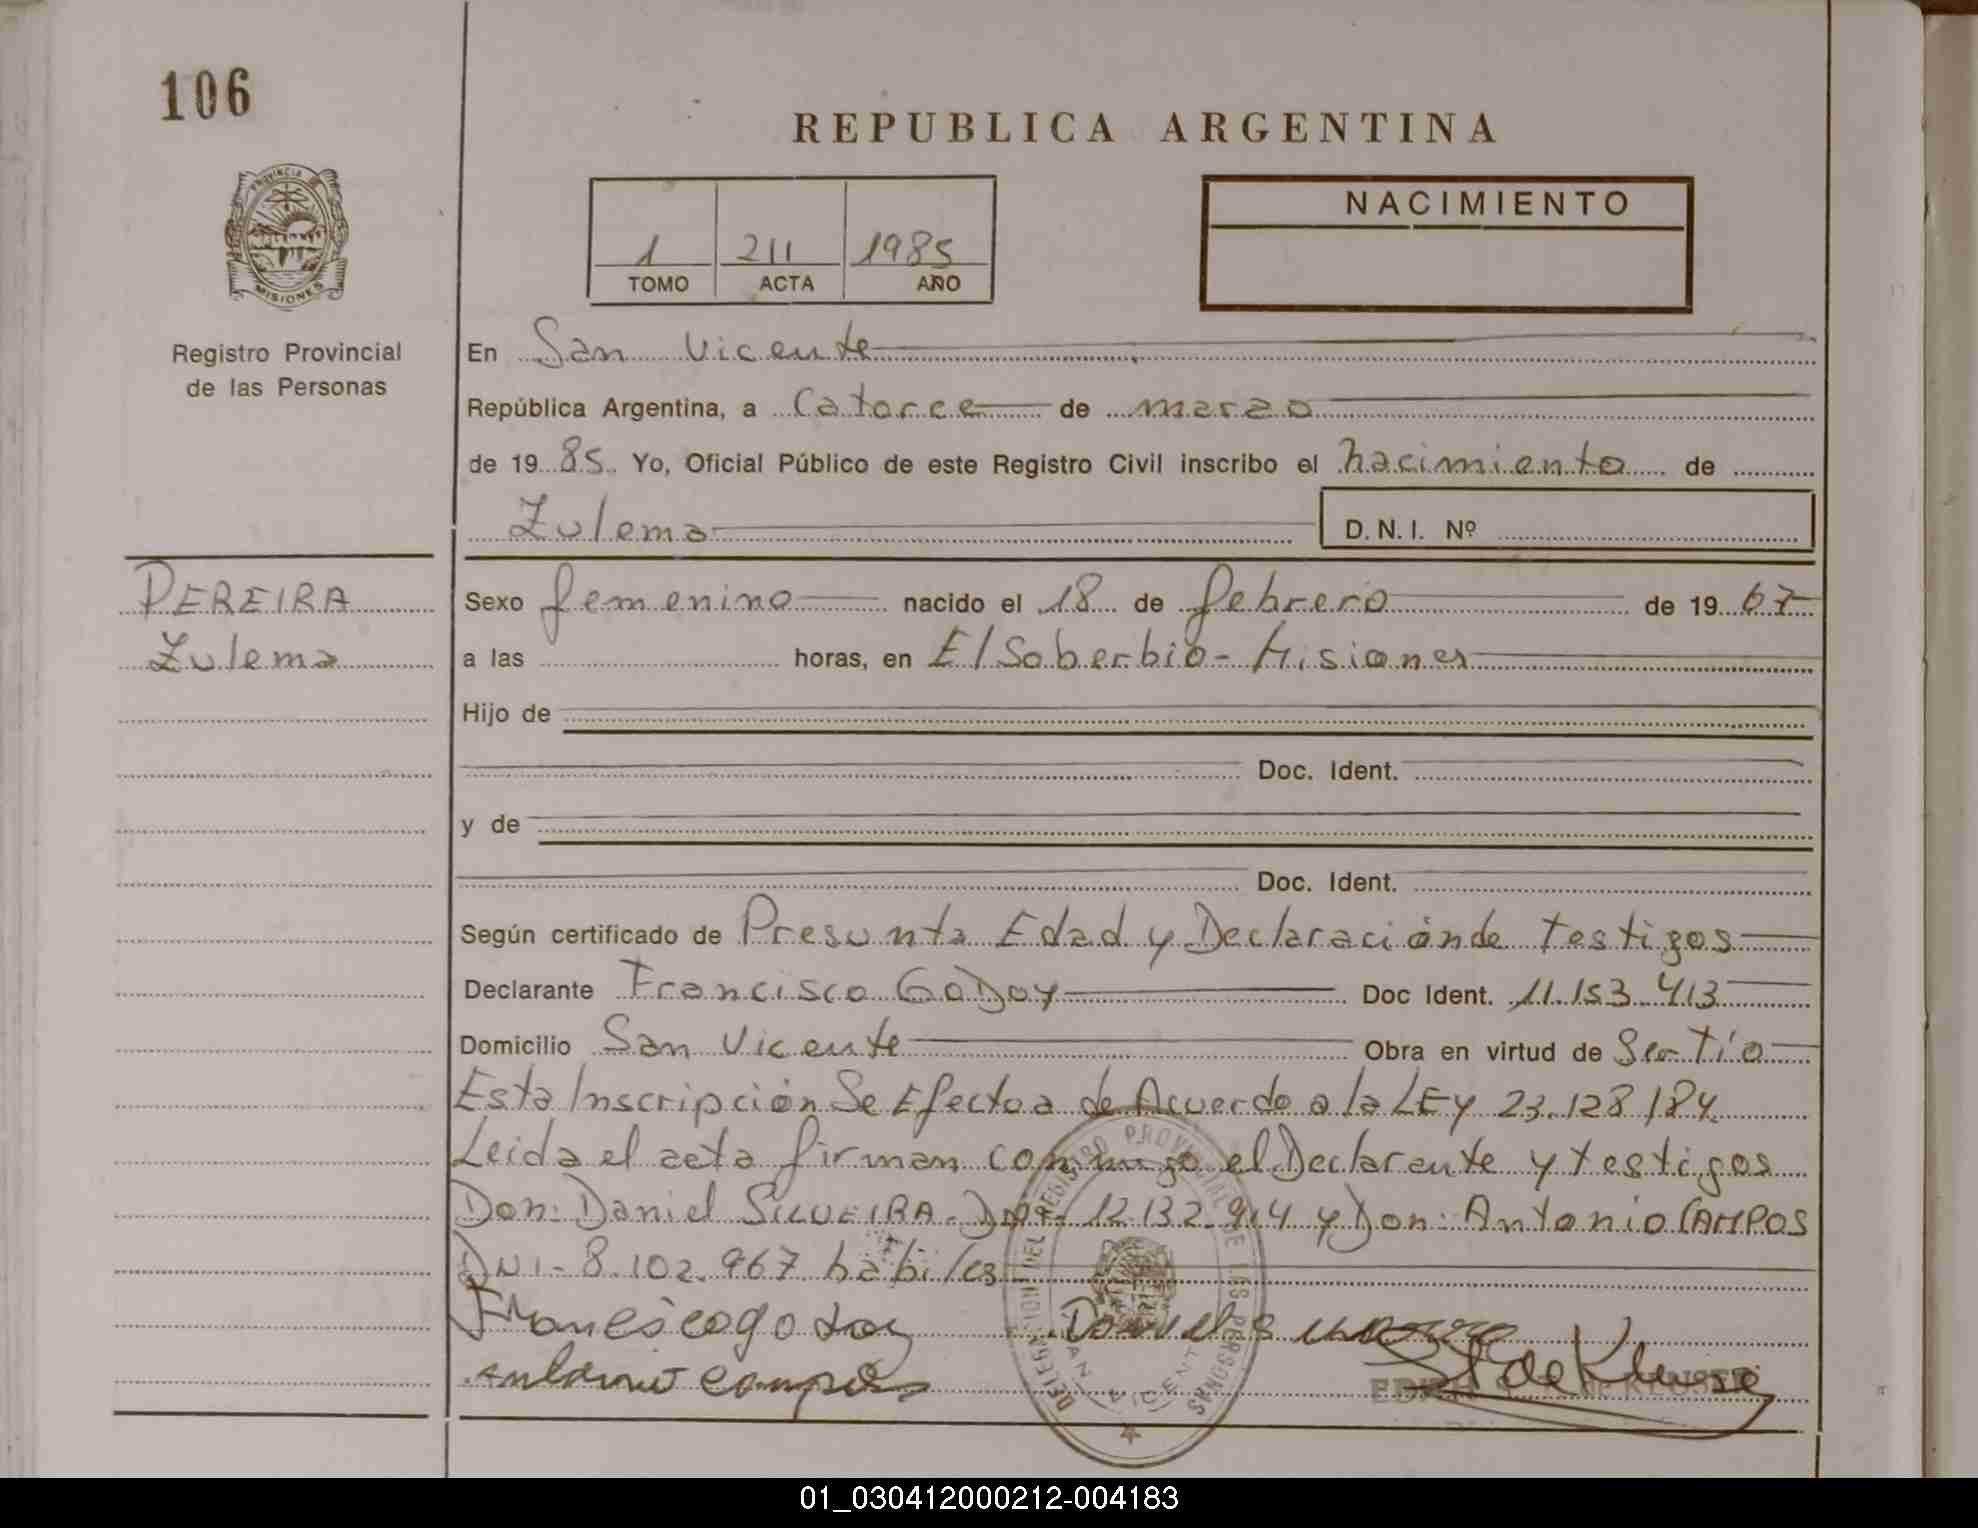 106
REPUBLICA ARGENTINA
PROVINCIA
MISIONES
Registro Provincial
de las Personas
1 211 1985
TOMO ACTA AÑO
NACIMIENTO
En San Vicente
República Argentina, a Catorce de marzo
de 19 85 Yo, Oficial Público de este Registro Civil inscribo el nacimiento de
Zulema D.N.I. Nº
PEREIRA
Zulema
Sexo femenino nacido el 18 de febrero de 19 67
a las horas, en El Soberbio - Misiones
Hijo de
Doc. Ident.
y de
Doc. Ident.
Según certificado de Presunta Edad y Declaración de testigos
Declarante Francisco GoDoy Doc Ident. 11.153.413
Domicilio San Vicente Obra en virtud de Ser Tío
Esta Inscripción Se Efectoa de Acuerdo a la LEy 23.128/84.
Leida el acta firman conmigo el Declarante y testigos
Don: Daniel SILVEIRA - DNI- 12.132.914 y Don: Antonio CAMPOS
DNI - 8.102.967 habiles
Francisco godoy
Antonio campos
DELEGACION DEL REGISTRO PROVINCIAL DE LAS PERSONAS
SAN VICENTE
01_030412000212-004183